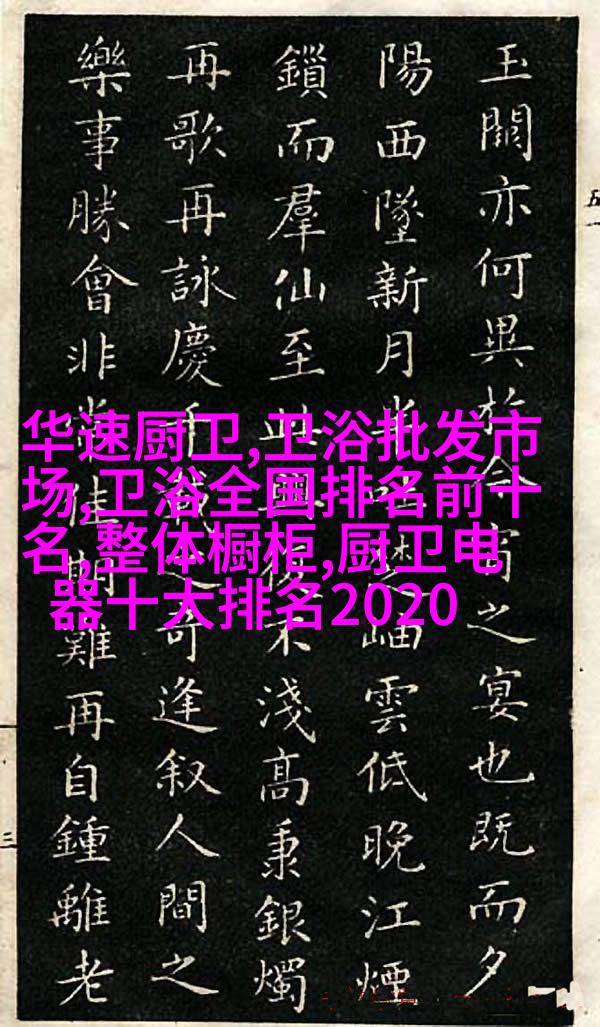 玉闕亦何異於今宵之宴也既而夕
陽西墜新月楚岫雲低晚江煙
鎖而羣仙至此興復不淺高秉銀燭
再歌再詠慶千載之奇逢叙人間之
樂事勝會非常佳期難再自鍾離老
华速厨卫,卫浴批发市
场,卫浴全国排名前十
名,整体橱柜,厨卫电
器十大排名2020
五一
三